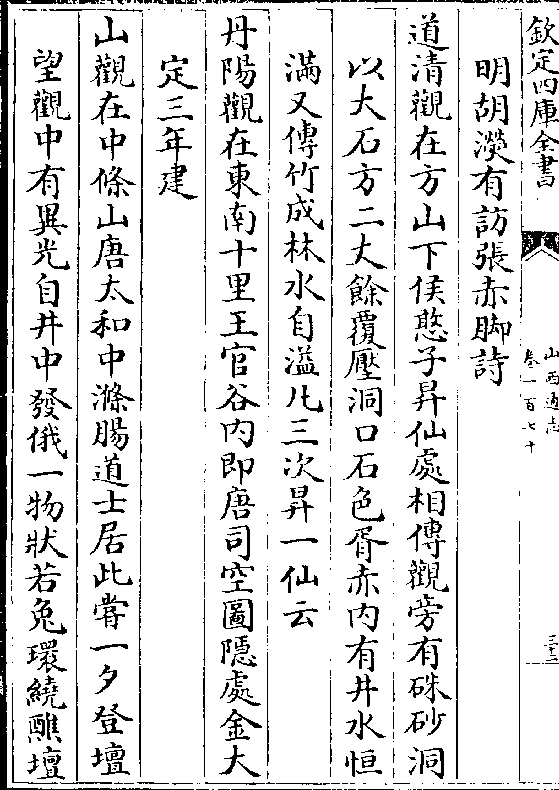 欽定四庫全書
山西通志
卷一百七十
三十二
明胡濙有訪張赤脚詩
道清觀在方山下侯憨子昇仙處相傳觀旁有硃砂洞
以大石方二丈餘覆壓洞口石色胥赤内有井水恒
滿又傳竹成林水自溢凡三次昇一仙云
丹陽觀在東南十里王官谷内即唐司空圖隱處金大
定三年建
山觀在中條山唐太和中滌腸道士居此嘗一夕登壇
望觀中有異光自井中發俄一物狀若兔環繞醮壇